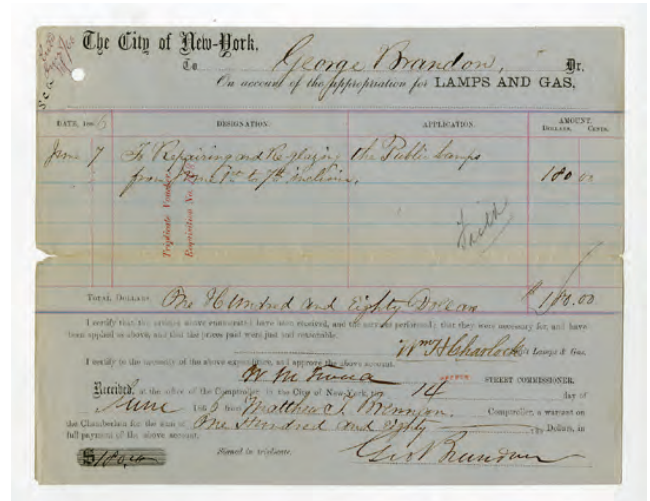 The City of New-York,
To George Brandon, Dr.
On account of the appropriation for LAMPS AND GAS.
DATE, 1866 DESIGNATION. APPLICATION. AMOUNT.
DOLLARS. CENTS.
June 7 To Repairing and Re-glazing the Public Lamps
from June 1st to 7th inclusive, 180 00
Triplicate Voucher
Requisition No.
TOTAL DOLLARS, One Hundred and Eighty Dollars $ 180.00
I certify that the articles above enumerated have been received, and the services performed; that they were necessary for, and have
been applied as above, and that the prices paid were just and reasonable.
Lamps & Gas.
I certify to the necessity of the above expenditure, and approve the above account.
STREET COMMISSIONER.
Received, at the office of the Comptroller in the City of New-York, this 14 day of
June 1866 from Matthew T. Brennan, Comptroller, a warrant on
the Chamberlain for the sum of One Hundred and Eighty Dollars, in
full payment of the above account.
$180.00 Signed in triplicate. Geo Brandon